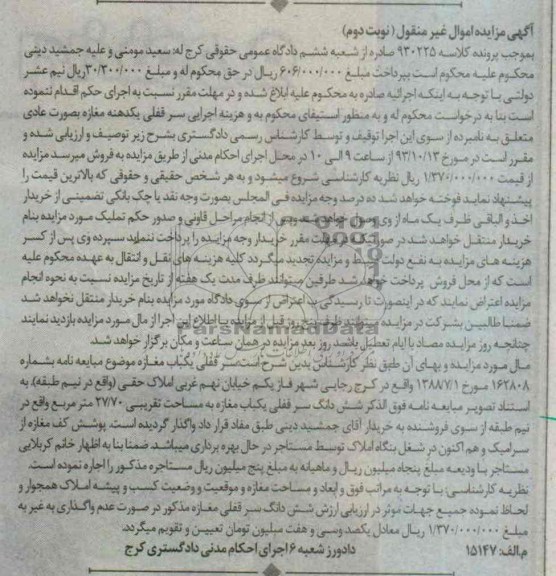 آگهی مزایده اموال غیر منقول (نوبت دوم)
بموجب پرونده کلاسه ۹۳۰۲۲۵ صادره از شعبه ششم دادگاه عمومی حقوقی کرج له: سعید مومنی و علیه جمشید دینی
محکوم علیه محکوم است بپرداخت مبلغ ۶۰۶/۰۰۰/۰۰۰ ریال در حق محکوم له و مبلغ ۳۰/۳۰۰/۰۰۰ریال نیم عشر
دولتی با توجه به اینکه اجرائیه صادره به محکوم علیه ابلاغ شده و در مهلت مقرر نسبت به اجرای حکم اقدام ننموده
است بنا به درخواست محکوم له و به منظور استیفای محکوم به و هزینه اجرایی سر قفلی یکدهنه مغازه بصورت عادی
متعلق به نامبرده از سوی این اجرا توقیف و توسط کارشناس رسمی دادگستری بشرح زیر توصیف و ارزیابی شده و
مقرر است در مورخ ۹۳/۱۰/۱۳ از ساعت ۹ الی ۱۰ در محل اجرای احکام مدنی از طریق مزایده به فروش میرسد مزایده
از قیمت ۱/۳۷۰/۰۰۰/۰۰۰ ریال نظریه کارشناسی شروع میشود و به هر شخص حقیقی و حقوقی که بالاترین قیمت را
پیشنهاد نماید فوخته خواهد شد ده درصد وجه مزایده فی المجلس بصورت وجه نقد یا چک بانکی تضمینی از خریدار
اخذ و الباقی ظرف یک ماه از وی وصول خواهد شد و پس از انجام مراحل قانونی و صدور حکم تملیک مورد مزایده بنام
خریدار منتقل خواهد شد در صورتیکه در مهلت مقرر خریدار وجه مزایده را پرداخت ننماید سپرده وی پس از کسر
هزینه های مزایده به نفع دولت ضبط و مزایده تجدید میگردد کلیه هزینه های نقل و انتقال به عهده محکوم علیه
است که از محل فروش پرداخت خواهد شد طرفین میتوانند ظرف مدت یک هفته از تاریخ مزایده نسبت به نحوه انجام
مزایده اعتراض نمایند که در اینصورت تا رسیدگی به اعتراض از سوی دادگاه مورد مزایده بنام خریدار منتقل نخواهد شد
ضمنا طالبین بشرکت در مزایده میتوانند ظرف پنج روز قبل از مزایده با اطلاع این اجرا از مال مورد مزایده بازدید نمایند
چنانچه روز مزایده مصادف با ایام تعطیل باشد روز بعد مزایده در همان ساعت و مکان برگزار خواهد شد.
مال مورد مزایده و بهای آن طبق نظر کارشناس بدین شرح است سر قفلی یکباب مغازه موضوع مبایعه نامه بشماره
۱۶۲۸۰۸ مورخ ۱۳۸۸۷/۱ واقع در کرج رجایی شهر فاز یکم خیابان نهم غربی املاک حقی (واقع در نیم طبقه). به
استناد تصویر مبایعه نامه فوق الذکر شش دانگ سر قفلی یکباب مغازه به مساحت تقریبی ۲۷/۷۰ متر مربع واقع در
نیم طبقه از سوی فروشنده به خریدار آقای جمشید دینی طبق مفاد قرار داد واگذار گردیده است. پوشش کف مغازه از
سرامیک و هم اکنون در شغل بنگاه املاک توسط مستاجر در حال بهره برداری میباشد. ضمنا بنا به اظهار خانم کربلایی
مستاجر با ودیعه مبلغ پنجاه میلیون ریال و ماهیانه به مبلغ پنج میلیون ریال مستاجره مذکور را اجاره نموده است.
نظریه کارشناسی: با توجه به مراتب فوق و ابعاد و مساحت مغازه و موقعیت و وضعیت کسب و پیشه املاک همجوار و
لحاظ نموده جمیع جهات موثر در ارزیابی ارزش شش دانگ سر قفلی مغازه مذکور در صورت عدم واگذاری به غیر به
مبلغ ۱/۳۷۰/۰۰۰/۰۰۰ ریال معادل یکصد و سی و هفت میلیون تومان تعیین و تقویم میگردد.
م الف: ۱۵۱۴۷ دادورز شعبه ۶ اجرای احکام مدنی دادگستری کرج
ParsNamadData